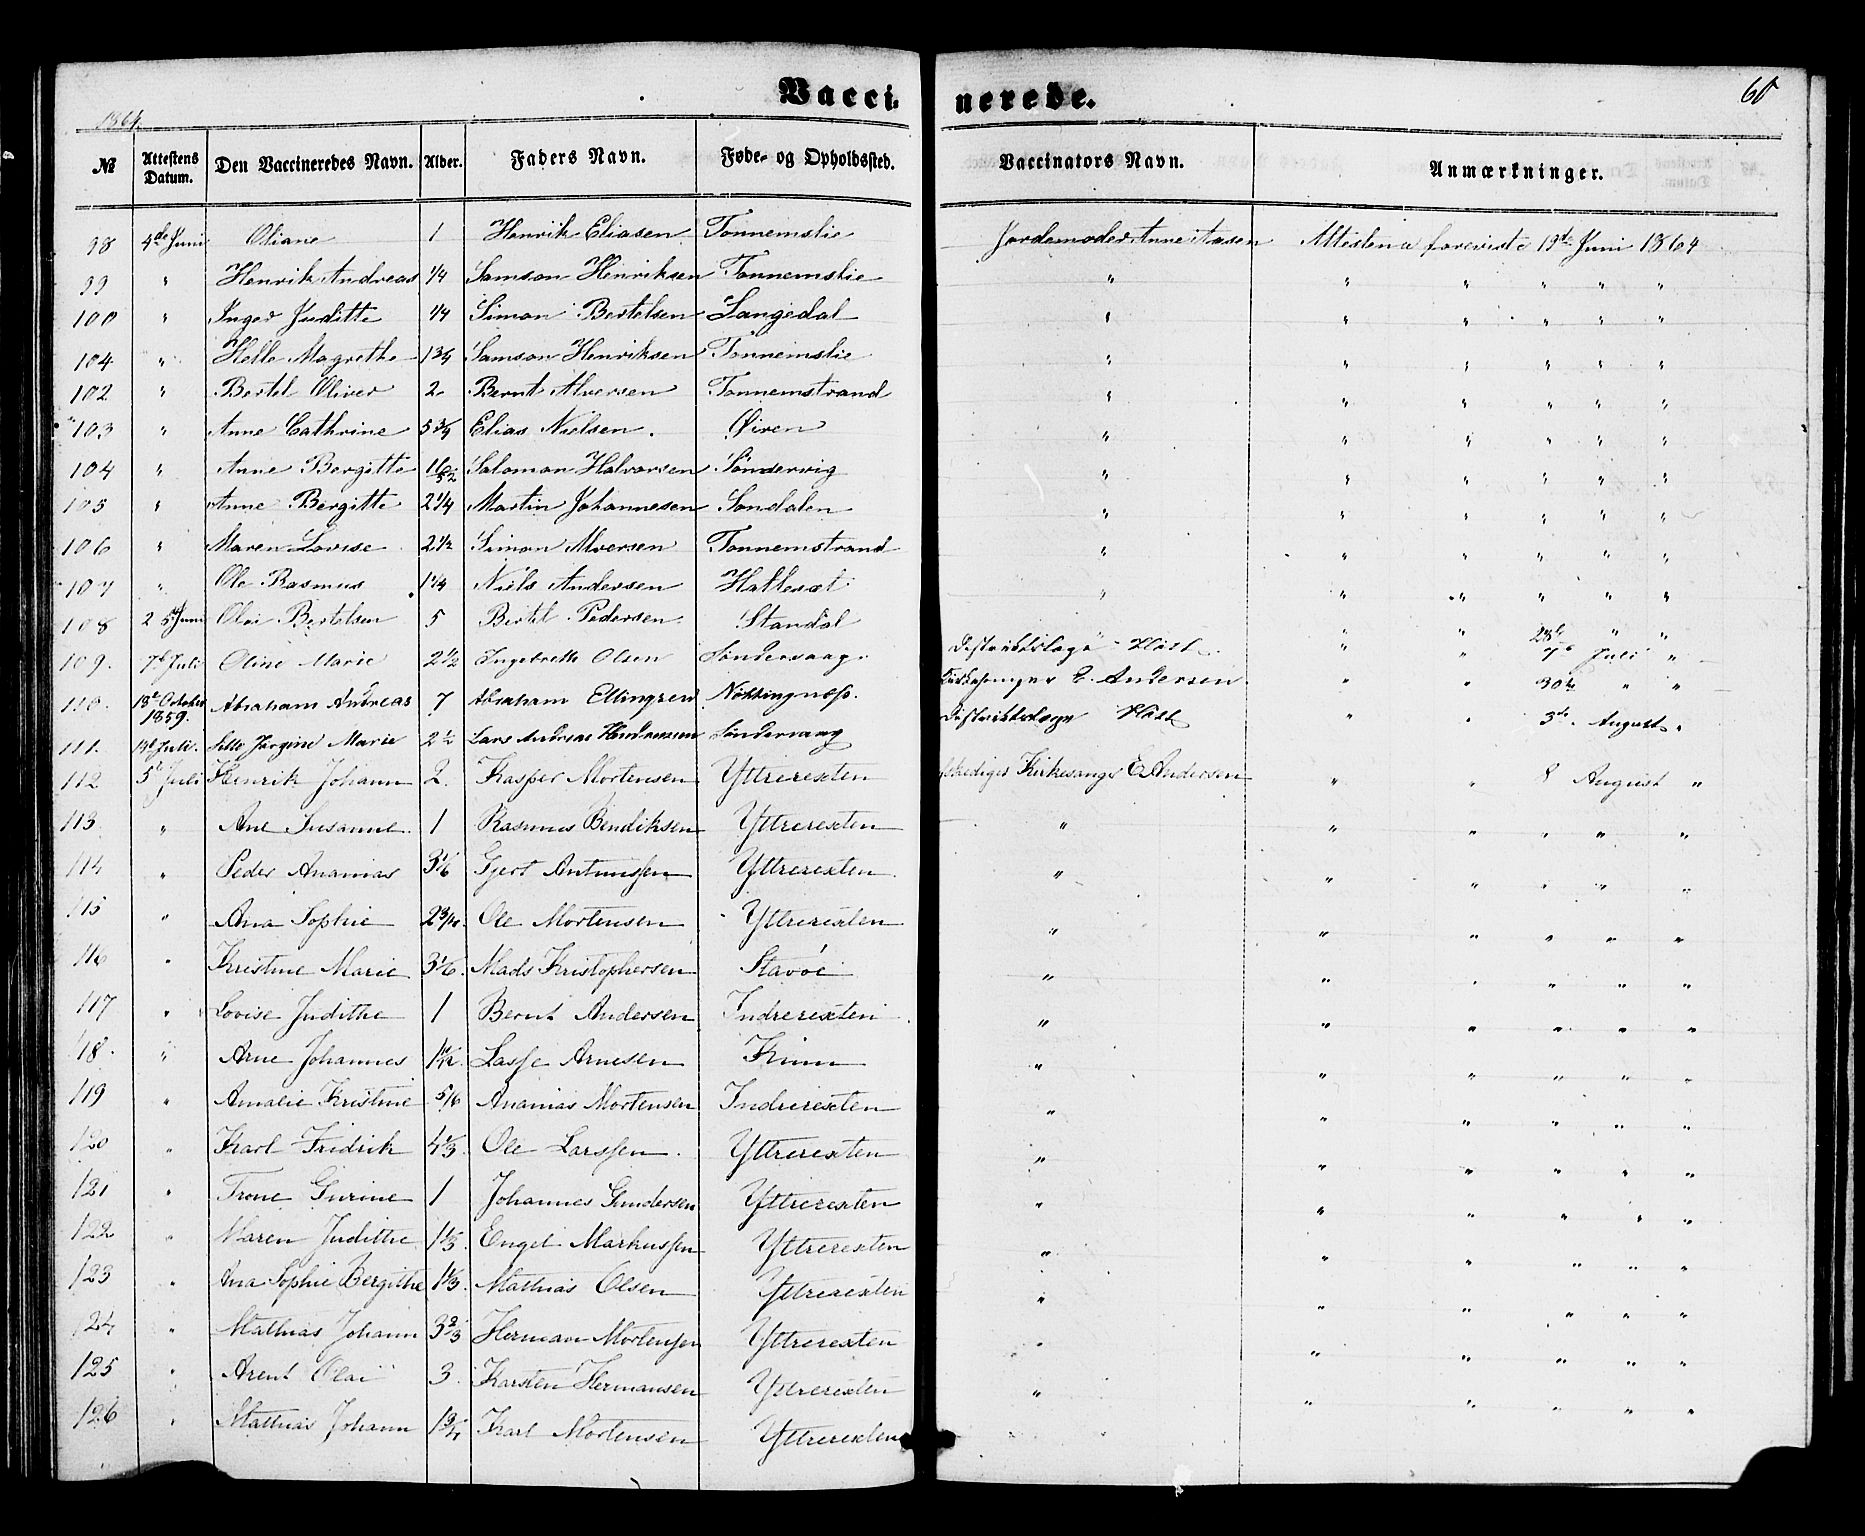 Vaccinerede.
60
1864.
№ Attestens Datum. Den Vaccineredes Navn. Alder. Faders Navn. Føde- og Opholdssted. Vaccinators Navn. Anmærkninger.
98 4de Juni Oliane 1 Henrik Eliasen Tonnemslie Jordemoder Anne Aasen Attesterne foreviste 19de Juni 1864
99 " Henrik Andreas 1/4 Samson Henriksen Tonnemslie " " " " " "
100 " Inger Juditte 1/4 Simon Bertelsen Langedal " " " " " "
104 " Helle Magrethe 1 3/4 Samson Henriksen Tonnemslie " " " " " "
102 " Bertel Oliver 2 Bernt Alversen Tonnemstrand " " " " " "
103 " Anne Cathrine 5 3/4 Elias Nielsen Øiren " " " " " "
104 " Anne Bergitte Salomon Halvorsen Søndervig " " " " " "
105 " Anne Bergitte 2 1/4 Martin Johannesen Sandalen " " " " " "
106 " Maren Lovise 2 1/2 Simon Alversen Tonnemstrand " " " " " "
107 " Ole Rasmus 1 1/4 Niels Andersen Hatleset " " " " " "
108 25 Juni Olai Bertelsen 5 Bertel Pedersen Standal " " 28de " "
109. 7de Juli Oline Marie 2 1/2 Ingebrekt Olsen Søndervaag. Distriktslæge Høst " " Juli "
110. 18de October 1859. Abraham Andreas 7 Abraham Ellingsen Nekkingnæs. Kirkesanger E. Andersen " " 30de " "
111. 19de Juli. Jørgine Marie 2 1/2 Lars Andreas Søndervaag Distriktslæge Høst " " 3de August "
112 5te Juli Henrik Johann 2. Kasper Mortensen Yttrerexten Kirkesanger E. Andersen " " 8 August "
113 " Ane Susanne 1 Rasmus Bendiksen Yttrerexten " " " " " "
114 " Peder Ananias 3 1/6 Gjert Antunssen Yttrerexten " " " " " "
115 " Ana Sophie 2 3/10 Ole Mortensen Yttrerexten " " " " " "
116 " Kristine Marie 3 1/6. Mads Kristophersen Stavøe " " " " " "
117 " Lovise Judithe 1 Bernt Andersen Indrerexten " " " " " "
118. " Arne Johannes Lasse Arnesen Kinn " " " " " "
119 " Amalie Kristine 5/6 Ananias Mortensen Indrerexten " " " " " "
120 " Karl Fredrik 4 1/3. Ole Larssen. Yttrerexten " " " " " "
121 " Trone Gurine 1 Johannes Gundersen Yttrerexten " " " " " "
122 " Maren Judithe 1 1/3. Engel Markussen Yttrerexten " " " " " "
123 " Ana Sophie Bergithe 1 1/3. Mathias Olsen Yttrerexten " " " " " "
124 " Mathias Johann 3 2/3 Herman Mortensen Yttrerexten " " " " " "
125 " Arent Olai 3. Karsten Hermansen Yttrerexten " " " " " "
126 " Mathias Johann 1 3/4 Karl Mortensen Yttrerexten